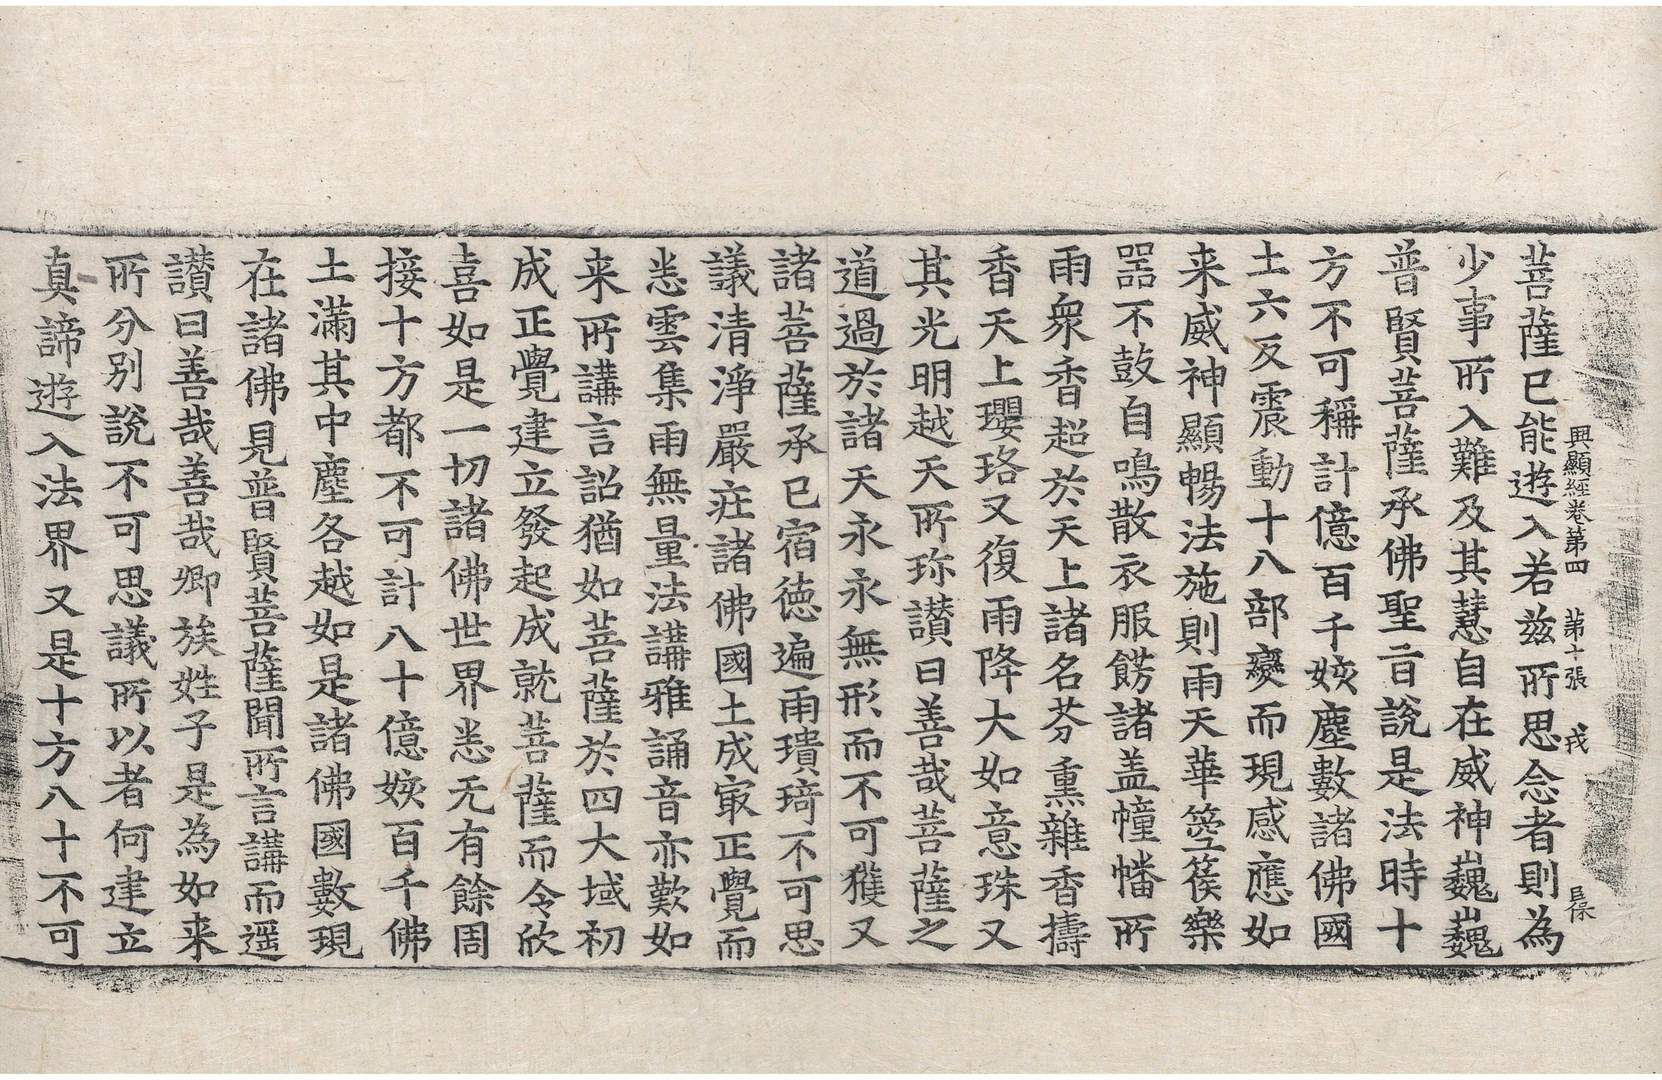 興顯經卷第四 第十張 戎
菩薩已能遊入若兹所思念者則為
少事所入難及其慧自在威神巍巍
普賢菩薩承佛聖旨說是法時十
方不可稱計億百千姟塵數諸佛國
土六反震動十八部變而現感應如
来威神顯暢法施則雨天華箜篌樂
器不鼓自鳴散衣服餝諸盖幢幡所
雨衆香超於天上諸名芬熏雜香擣
香天上瓔珞又復雨降大如意珠又
其光明越天所珎讃曰善哉菩薩之
道過於諸天永永無形而不可獲又
諸菩薩承已宿德遍雨璝琦不可思
議清淨嚴莊諸佛國土成冣正覺而
悉雲集雨無量法講雅誦音亦歎如
来所講言詔猶如菩薩於四大域初
成正覺建立發起成就菩薩而令欣
喜如是一切諸佛世界悉无有餘周
接十方都不可計八十億姟百千佛
土滿其中塵各越如是諸佛國數現
在諸佛見普賢菩薩聞所言講而遥
讃曰善哉善哉卿族姓子是為如来
所分別說不可思議所以者何建立
真諦遊入法界又是十方八十不可